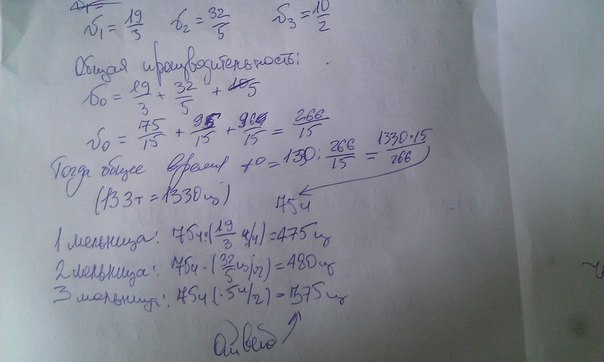 υ₁ = 19/3 υ₂ = 32/5 υ₃ = 10/2
Общая производительность:
υ₀ = 19/3 + 32/5 + 5
υ₀ = 75/15 + 95/15 + 96/15 = 266/15
Тогда общее время t₀ = 1330 : 266/15 = 1330·15/266
(133т = 1330ц) 75ч
1 мельница: 75ч·(19/3 ц/ч) = 475ц
2 мельница: 75ч·(32/5 ц/ч) = 480ц
3 мельница: 75ч(·5ч/2) = 375ц
Ответ